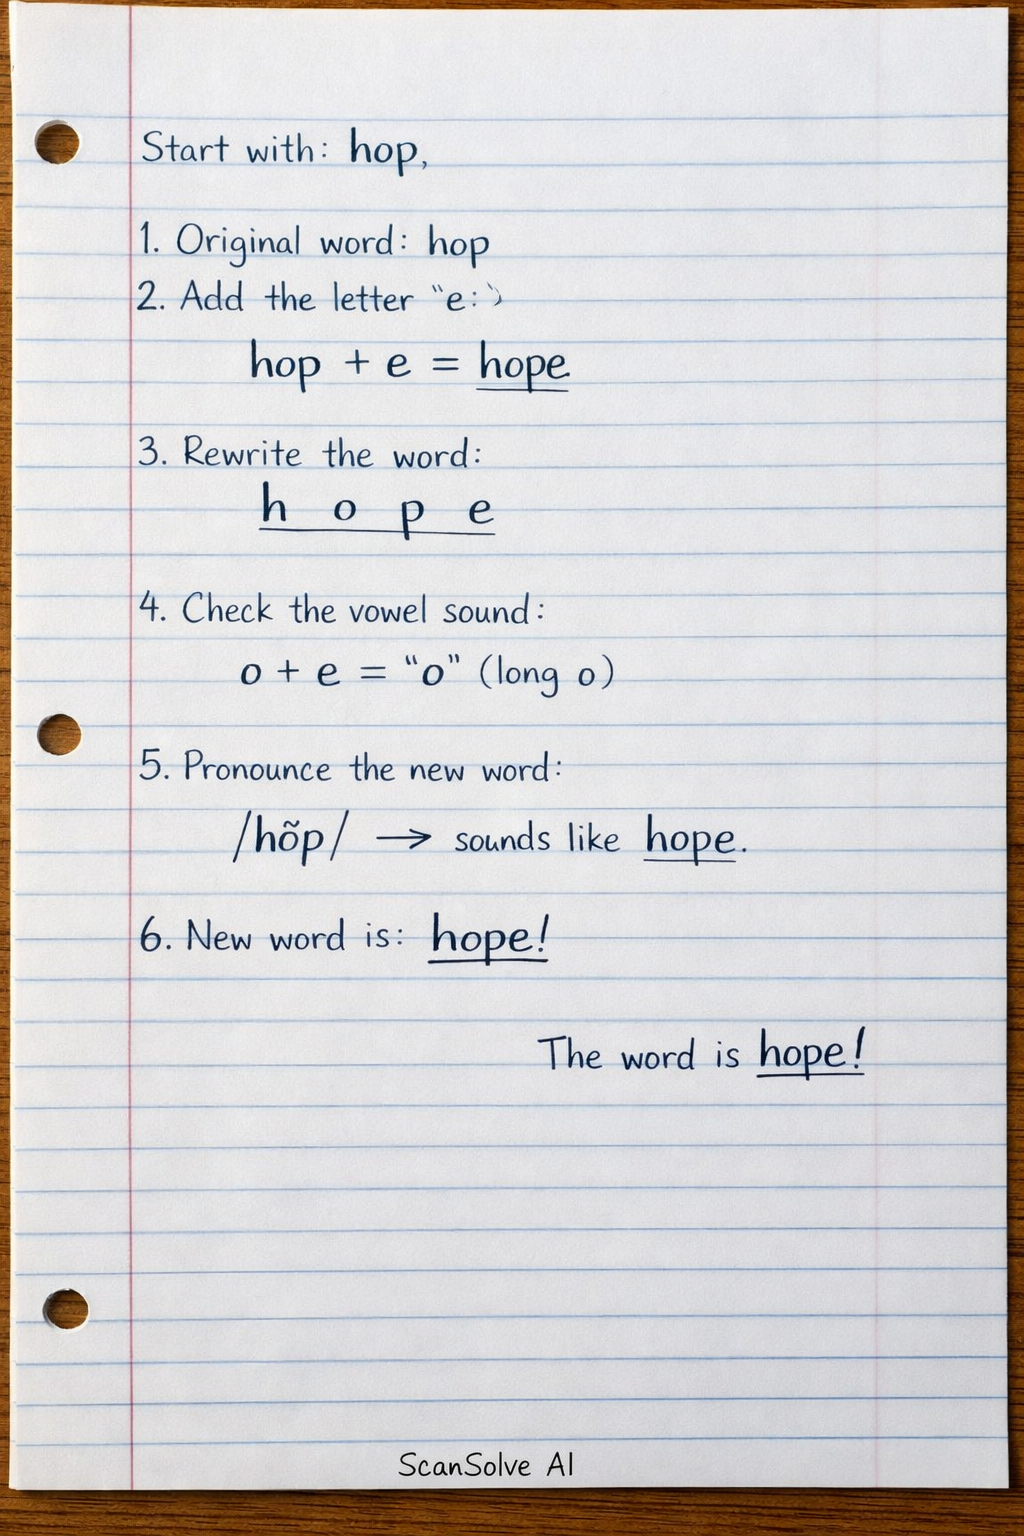 Start with: hop,
1. Original word: hop
2. Add the letter "e:"
hop + e = hope
3. Rewrite the word:
h o p e
4. Check the vowel sound:
o + e = "o" (long o)
5. Pronounce the new word:
/hõp/ → sounds like hope.
6. New word is: hope!
The word is hope!
ScanSolve AI